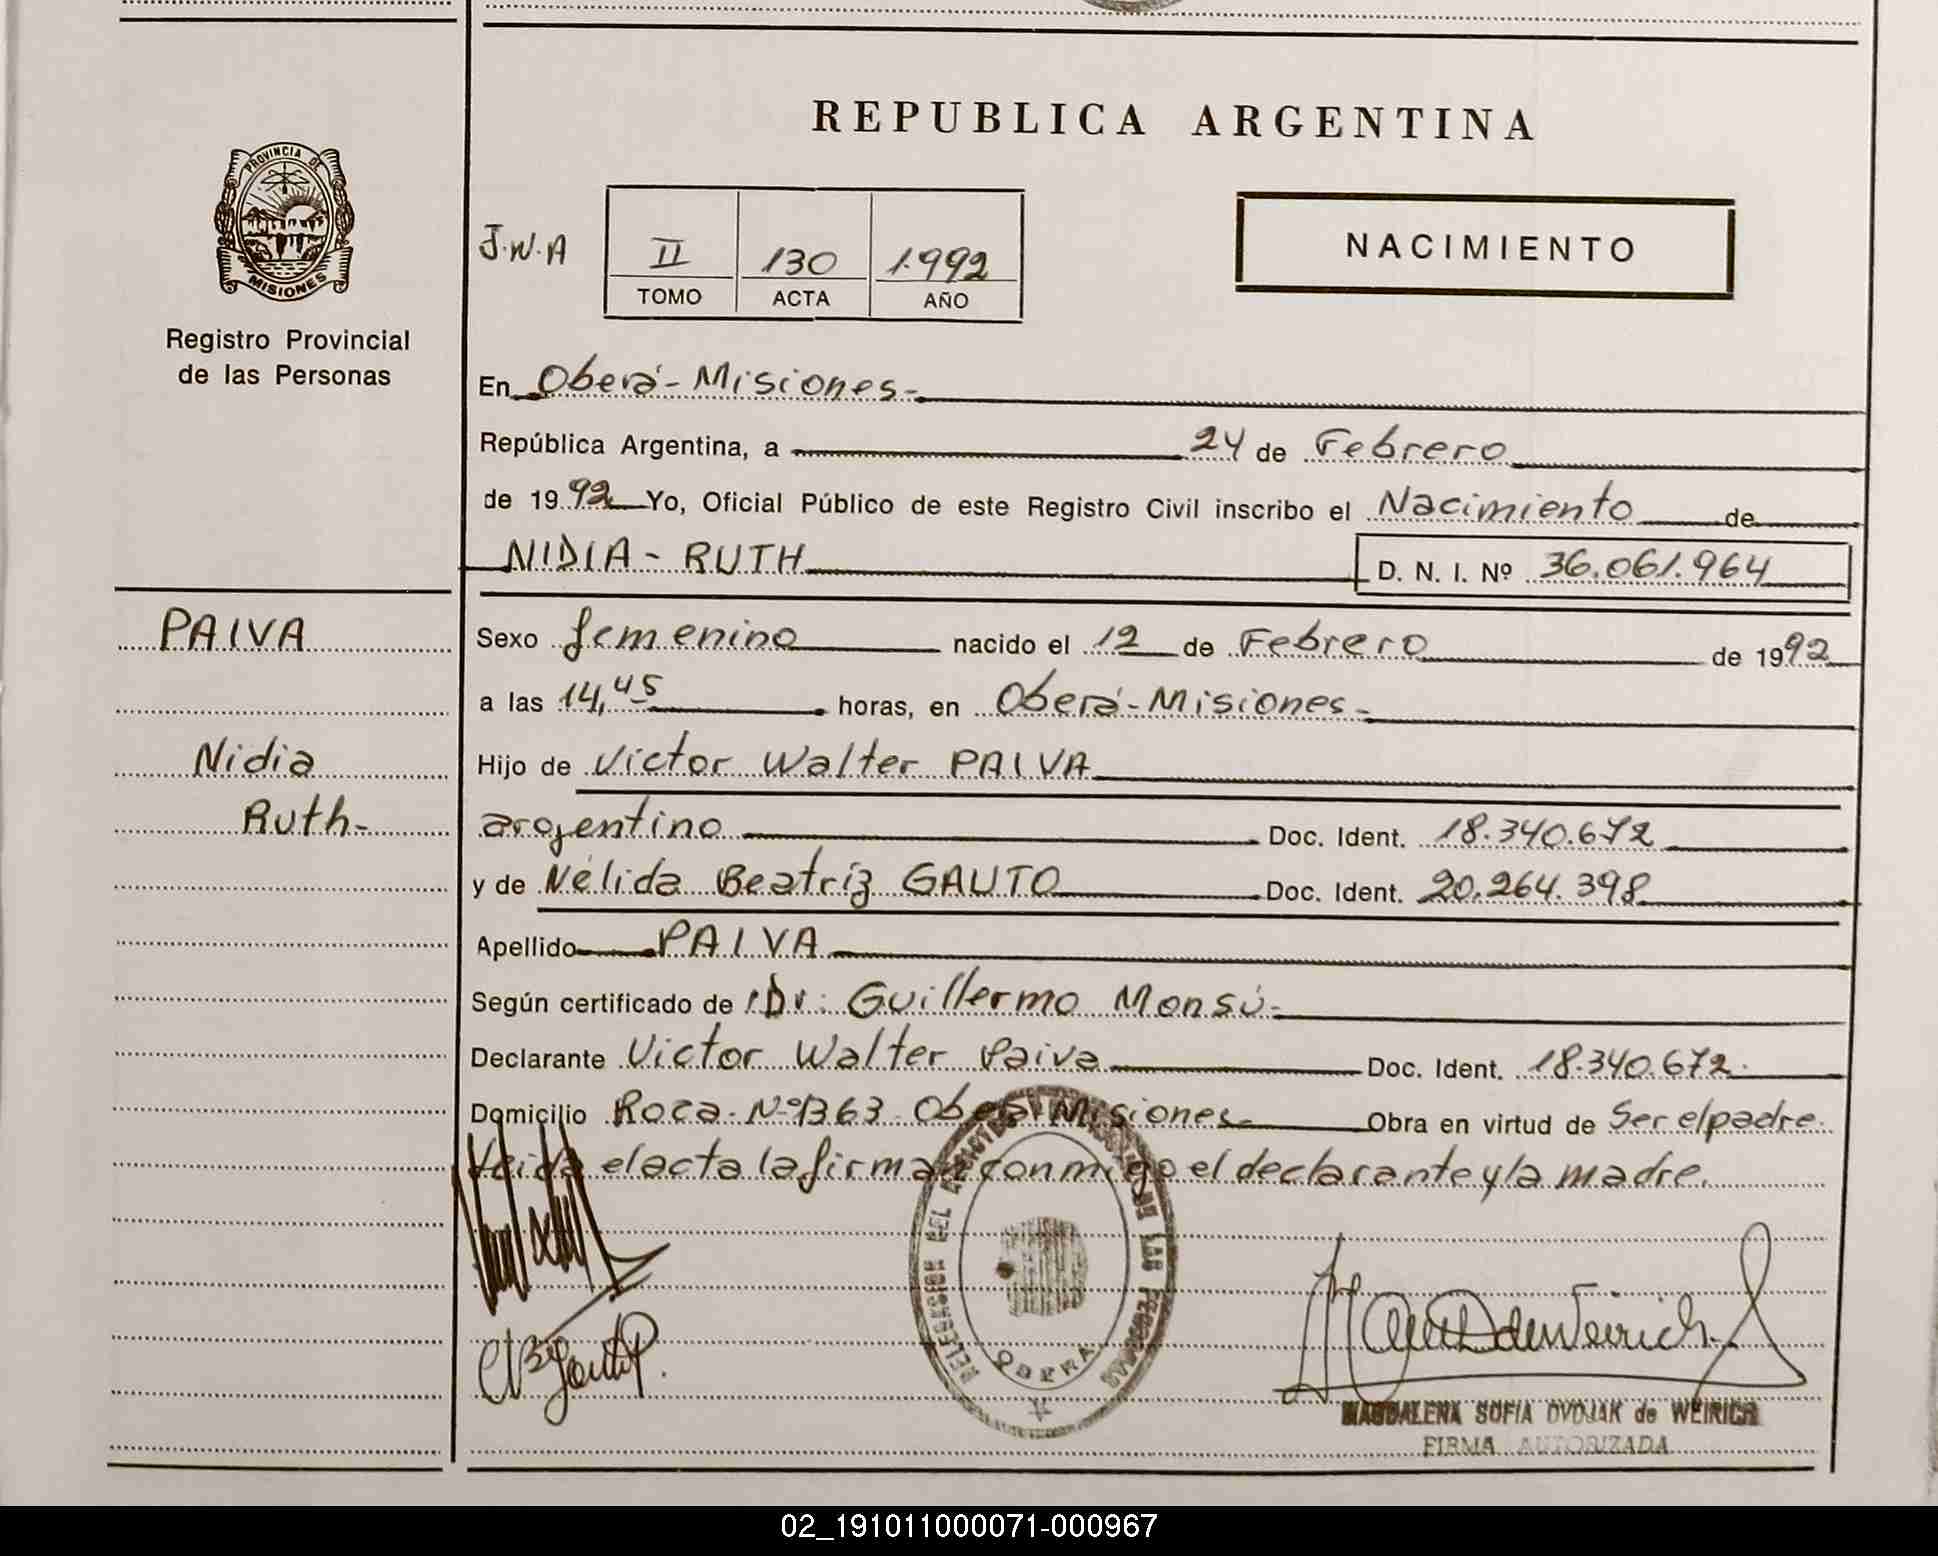 REPUBLICA ARGENTINA
PROVINCIA DE
MISIONES
Registro Provincial
de las Personas
J.W.A
II 130 1.992
TOMO ACTA AÑO
NACIMIENTO
En Oberá - Misiones -
República Argentina, a 24 de Febrero
de 19 92 Yo, Oficial Público de este Registro Civil inscribo el Nacimiento de
NIDIA - RUTH D. N. I. Nº 36.061.964
PAIVA
Nidia
Ruth-
Sexo femenino nacido el 12 de Febrero de 19 92
a las 14,45 horas, en Oberá - Misiones -
Hijo de Victor Walter PAIVA
argentino Doc. Ident. 18.340.672
y de Nélida Beatriz GAUTO Doc. Ident. 20.264.398
Apellido PAIVA
Según certificado de Dr. Guillermo Monsú-
Declarante Victor Walter Paiva Doc. Ident. 18.340.672.
Domicilio Roca Nº 1363 Oberá Misiones Obra en virtud de Ser el padre.
Leída el acta la firman conmigo el declarante y la madre.
OBERA
MAGDALENA SOFIA DVDJAK de WEIRICH
FIRMA AUTORIZADA
02_191011000071-000967